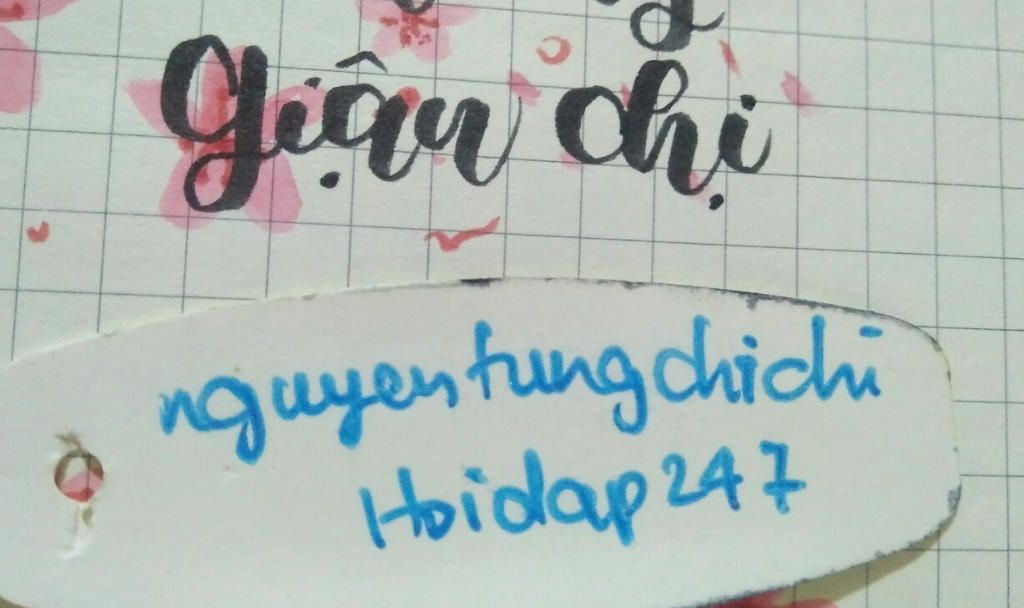 Giận chị
nguyentungchichi
Hoidap247